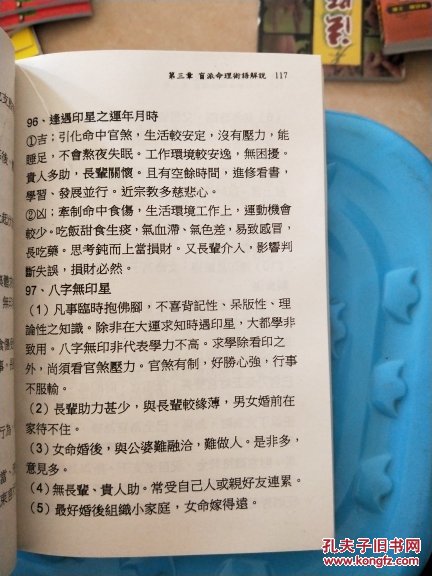 第三章 盲派命理術語解說 117
96、逢遇印星之運年月時
①吉：引化命中官煞，生活較安定，沒有壓力，能
睡足，不會熬夜失眠。工作環境較安逸，無困擾。
貴人多助，長輩關懷。且有空餘時間，進修看書，
學習、發展並行。近宗教多慈悲心。
②凶：牽制命中食傷，生活環境工作上，運動機會
較少。吃飯甜食生痰，氣血滯、氣色差，易致感冒，
長吃藥。思考鈍而上當損財。又長輩介入，影響判
斷失誤，損財必然。
97、八字無印星
（1）凡事臨時抱佛腳，不喜背記性、呆版性、理
論性之知識。除非在大運求知時遇印星，大都學非
致用。八字無印非代表學力不高。求學除看印之
外，尚須看官煞壓力。官煞有制，好勝心強，行事
不服輸。
（2）長輩助力甚少，與長輩較緣薄，男女婚前在
家待不住。
（3）女命婚後，與公婆難融洽，難做人。是非多，
意見多。
（4）無長輩、貴人助。常受自己人或親好友連累。
（5）最好婚後組織小家庭，女命嫁得遠。
孔夫子旧书网